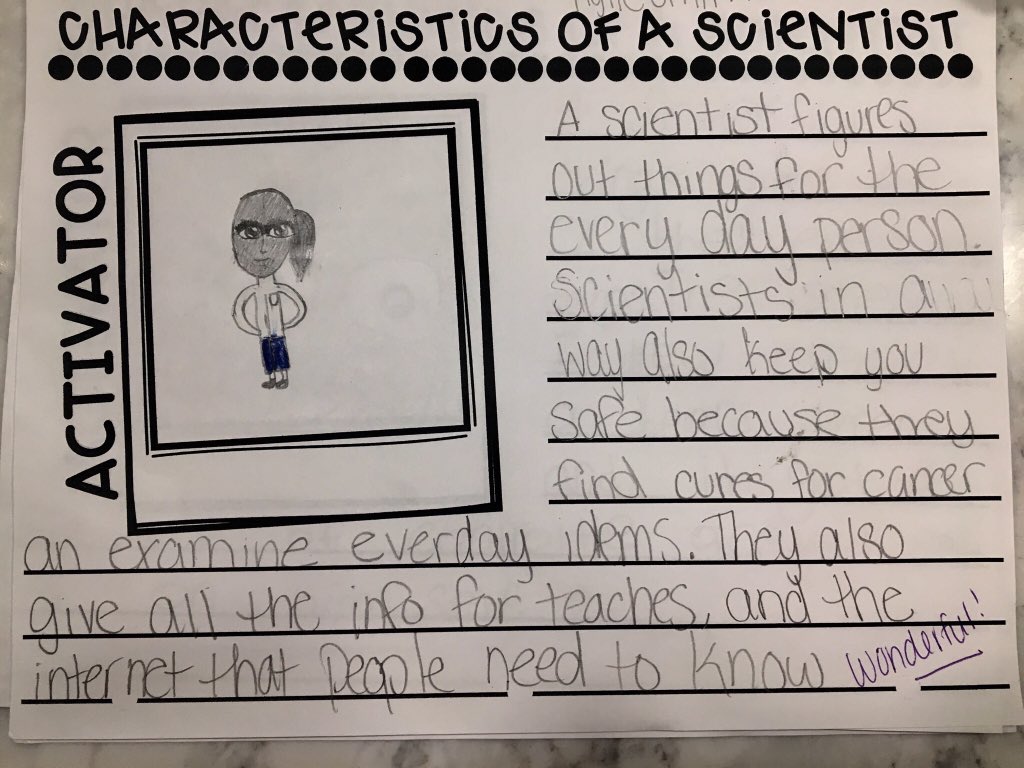 CHARACTERISTICS OF A SCIENTIST
ACTIVATOR
A scientist figures
out things for the
every day person.
Scientists in a
way also keep you
safe because they
find cures for cancer
an examine everday idems. They also
give all the info for teaches, and the
internet that people need to know
Wonderful!